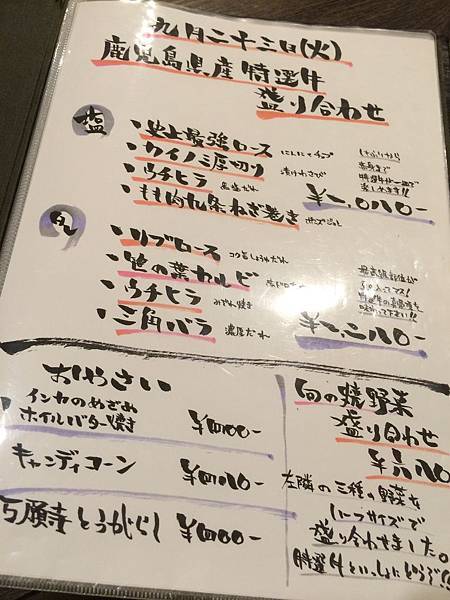 九月二十三日(火)
鹿児島県産 特選牛
盛り合わせ
塩
・史上最強ロース にんにくチップ
・カイノミ厚切り 漬けわさび
・ウチヒラ
・もも肉九条ねぎ巻き ポンズジュレ
・リブロース コク旨しょうゆだれ
・笹の葉カルビ
・ウチヒラ みぞれ焼き
・三角バラ 濃厚だれ
おやさい
インカのめざめ
ホイルバター焼き ¥四〇〇-
キャンディコーン ¥四八〇-
万願寺とうがらし ¥四〇〇-
旬の焼野菜
盛り合わせ
¥六八〇
左隣の三種の野菜を
ハーフサイズで
盛り合わせました。
特選牛といっしょにどうぞ!!